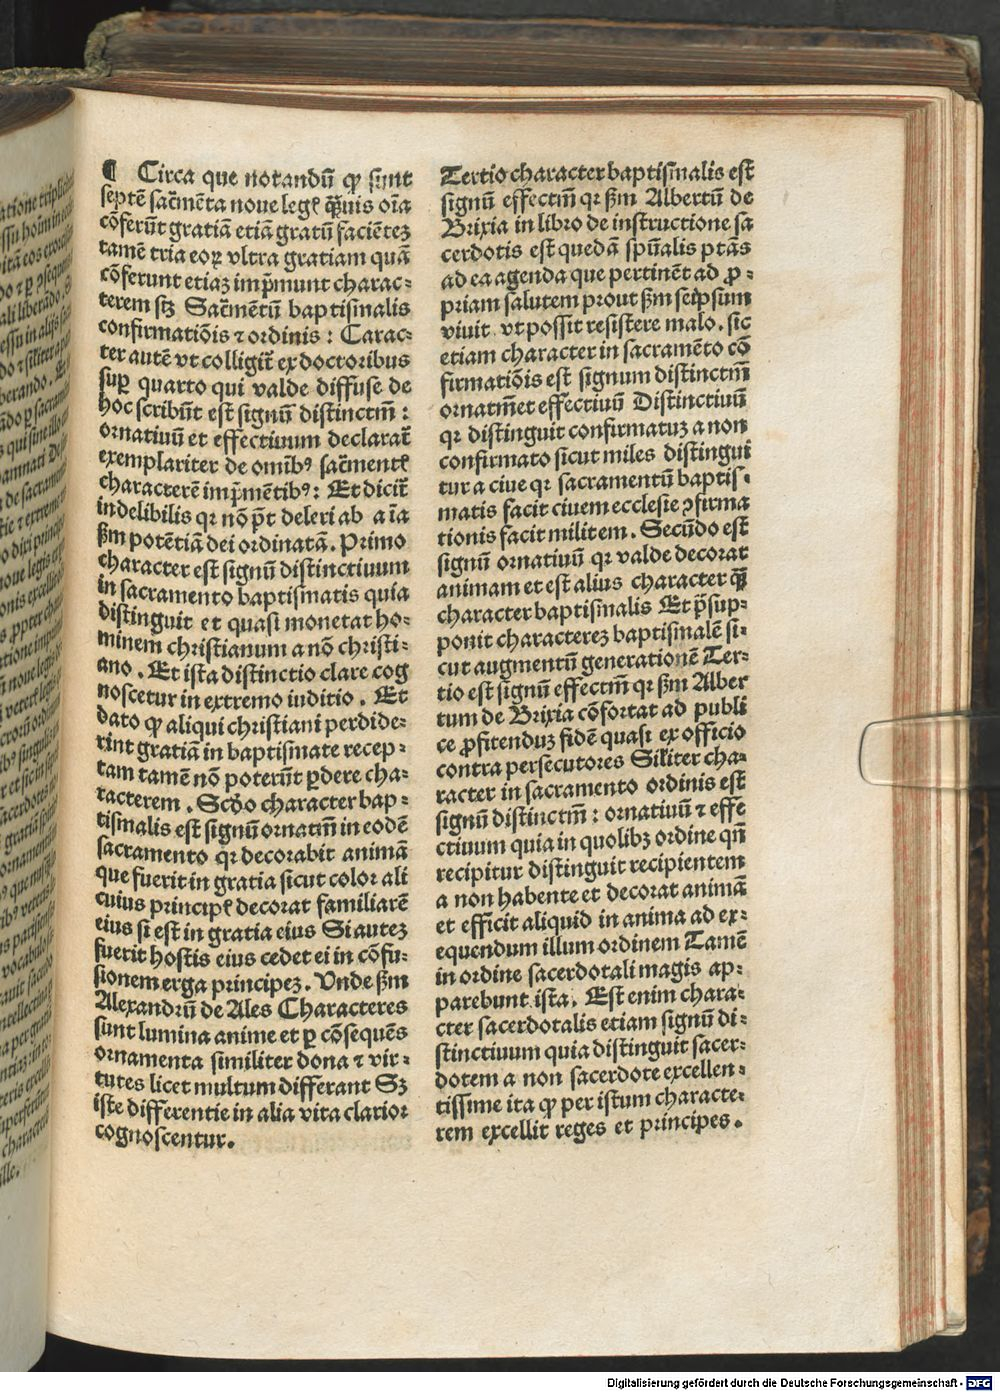 ¶ Circa que notandū ꝙ sunt
septē sac̄mēta noue legꝭ q̄uis oīa
cōferūt gratiā etiā gratū faciētez
tamē tria eoꝝ vltra gratiam quā
cōferunt etiaz imp̄munt charac⸗
terem sꝫ Sac̄mētū baptismalis
confirmatiōis ⁊ ordinis : Carac⸗
ter autē vt colligit̄ ex doctoribus
sup̄ quarto qui valde diffuse de
hoc scribūt est signū distinctm̄ :
ornatiuū et effectiuum declarat̄
exemplariter de omībꝰ sac̄mentꝭ
characterē imp̄mētibꝰ: Et dicit̄
indelibilis qꝛ nō pt̄ deleri ab aīa
ßm potētiā dei ordinatā. Primo
character est signū distinctiuum
in sacramento baptismatis quia
distinguit et quasi monetat ho⸗
minem christianum a nō christi⸗
ano . Et ista distinctio clare cog
noscetur in extremo iuditio . Et
dato ꝙ aliqui christiani perdide⸗
rint gratiā in baptismate recep⸗
tam tamē nō poterūt ꝑdere cha⸗
racterem . Scd̄o character bap⸗
tismalis est signū ornatm̄ in eodē
sacramento qꝛ decorabit animā
que fuerit in gratia sicut color ali
cuius principꝭ decorat familiarē
eius si est in gratia eius Si autez
fuerit hostis eius cedet ei in cōfu⸗
sionem erga principez. Vnde ßm
Alexandrū de Ales Characteres
sunt lumina anime et ꝑ cōsequēs
ornamenta similiter dona ⁊ vir⸗
tutes licet multum differant Sꝫ
iste differentie in alia vita clarior
cognoscentur.
Tertio character baptismalis est
signū effectm̄ qꝛ ßm Albertū de
Brixia in libro de instructione sa
cerdotis est quedā spūalis ptās
ad ea agenda que pertinēt ad ꝓ⸗
priam salutem prout ßm seipsum
viuit vt possit resistere malo . sic
etiam character in sacramēto cō
firmatiōis est signum distinctm̄
ornatm̄ et effectiuū Distinctiuū
qꝛ distinguit confirmatuz a non
confirmato sicut miles distingui
tur a ciue qꝛ sacramentū baptis⸗
matis facit ciuem ecclesie ꝯfirma
tionis facit militem. Secūdo est
signū ornatiuū qꝛ valde decorat
animam et est alius character q̄
character baptismalis Et p̄sup⸗
ponit characterez baptismalē si⸗
cut augmentū generationē Ter⸗
tio est signū effectm̄ qꝛ ßm Alber
tum de Brixia cōfortat ad publi
ce ꝓfitenduz fidē quasi ex officio
contra persecutores Siliter cha⸗
racter in sacramento ordinis est
signū distinctm̄ : ornatiuū ⁊ effe
ctiuum quia in quolibꝫ ordine qn̄
recipitur distinguit recipientem
a non habente et decorat animā
et efficit aliquid in anima ad ex⸗
equendum illum ordinem Tamē
in ordine sacerdotali magis ap⸗
parebunt ista. Est enim chara⸗
cter sacerdotalis etiam signū di⸗
stinctiuum quia distinguit sacer⸗
dotem a non sacerdote excellen⸗
tissime ita ꝙ per istum characte⸗
rem excellit reges et principes.
Digitalisierung gefördert durch die Deutsche Forschungsgemeinschaft - DFG